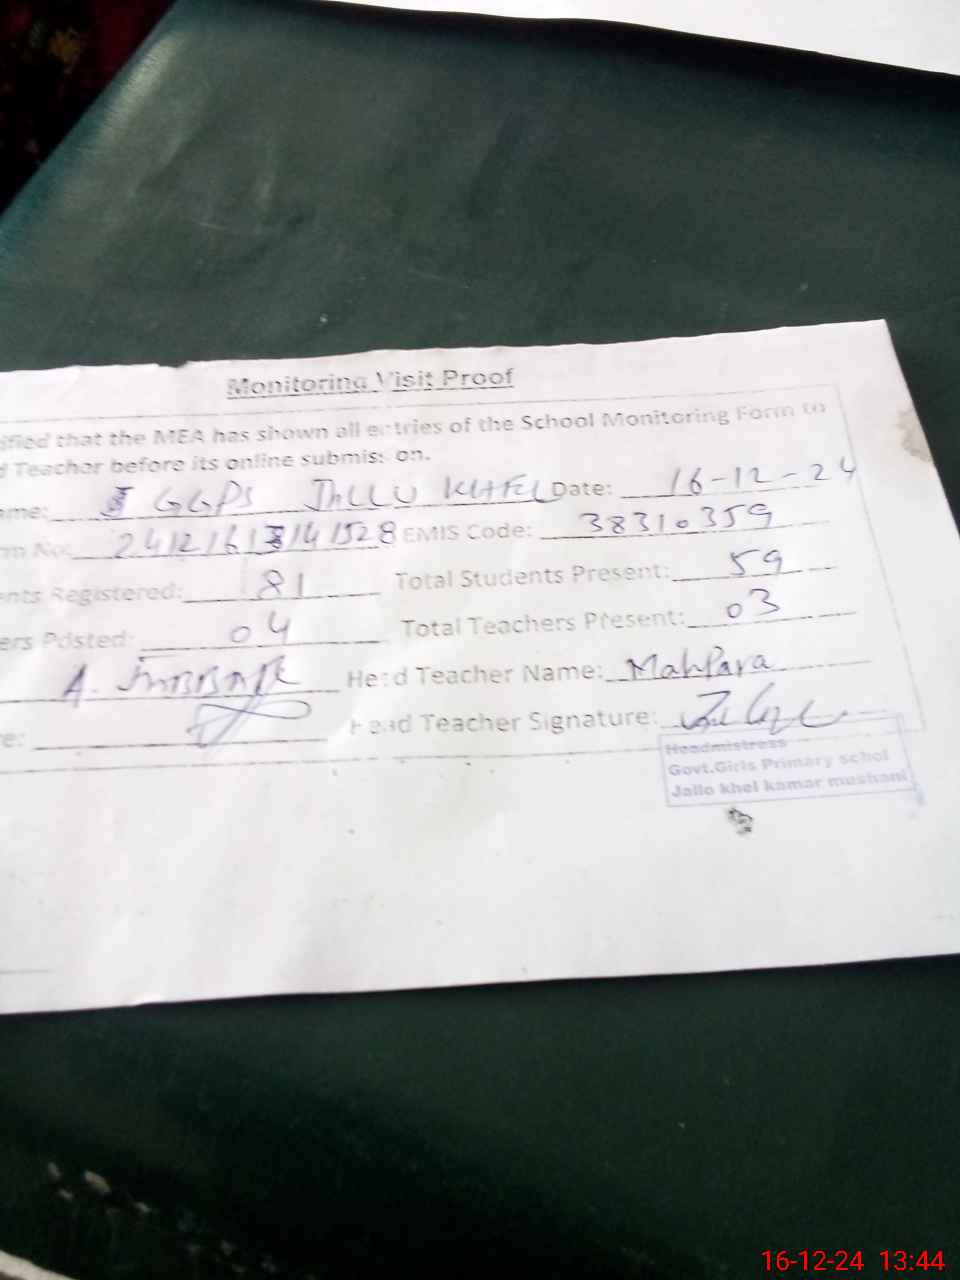 Monitoring Visit Proof
ified that the MEA has shown all entries of the School Monitoring Form to
d Teacher before its online submission.
ame: GGPS JALLU KHEL Date: 16-12-24
rm No: EMIS Code: 38310359
ents Registered: 81 Total Students Present: 59
ers Posted: 04 Total Teachers Present: 03
A. Head Teacher Name: MahPara
re: Head Teacher Signature:
Headmistress
Govt.Girls Primary schol
Jallo khel kamar mushani
16-12-24 13:44